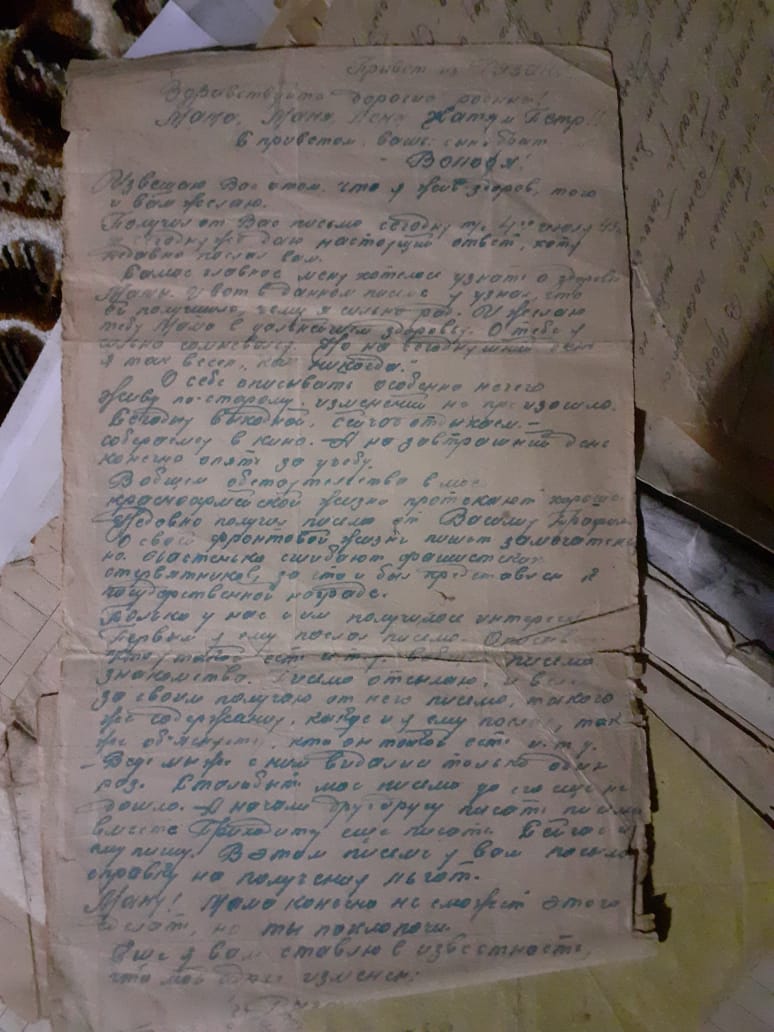 Привет из Рязани
Здравствуйте дорогие родные!
Мама, Маня, Лена, Катя и Петр!!
С приветом, ваш сын и брат
Володя!
Извещаю Вас о том, что я жив здоров, того
и вам желаю.
Получил от Вас письмо сегодня 4го июля
и сегодня же даю настоящий ответ, хотя
недавно послал вам.
Самое главное меня хотелося узнать о здоровьи
Мамы. И вот в данном письме я узнал, что
получшало, чему я сильно рад. И желаю
тебе Мама в дальнейшем здоровья. О тебе я
сильно сомневался. Но на сегодняшний день
я так весел, как никогда.
О себе описывать особенно нечего
живу по-старому изменений не произошло.
Сегодня выходной, сейчас отдыхаем. –
собераемся в кино. – А на завтрашний день
конечно опять за учебу.
Вобщем обстоятельства в моей
красноармейской жизни протекают хорошо.
Недавно получил письмо от Василия
О своей фронтовой жизни пишет замечательно
но. сшибают фашистских
стервятников, за что и был представлен к
государственной награде.
Только у нас с им получилося интересно
Первый я ему послал письмо.
кто я такой есть и т.д. письмо
знакомства. Письмо отсылаю, и
за своим получаю от него письмо, такого
же содержания, какое и я ему послал, так
же объясняет, кто он такой есть и т.д.
– Ведь мы же с ним видались только один
раз. Стало быть мое письмо до его еще не
дошло. – А начали друг другу писать письма
вместе. Приходится еще писать. Сейчас и
ему пишу. В этом письме я вам посылаю
справку на получения льгот.
Маня! Мама конечно не сможет этого
сделать, но ты похлопочи.
Еще я вам ставлю в известность,
что мой адрес изменен: